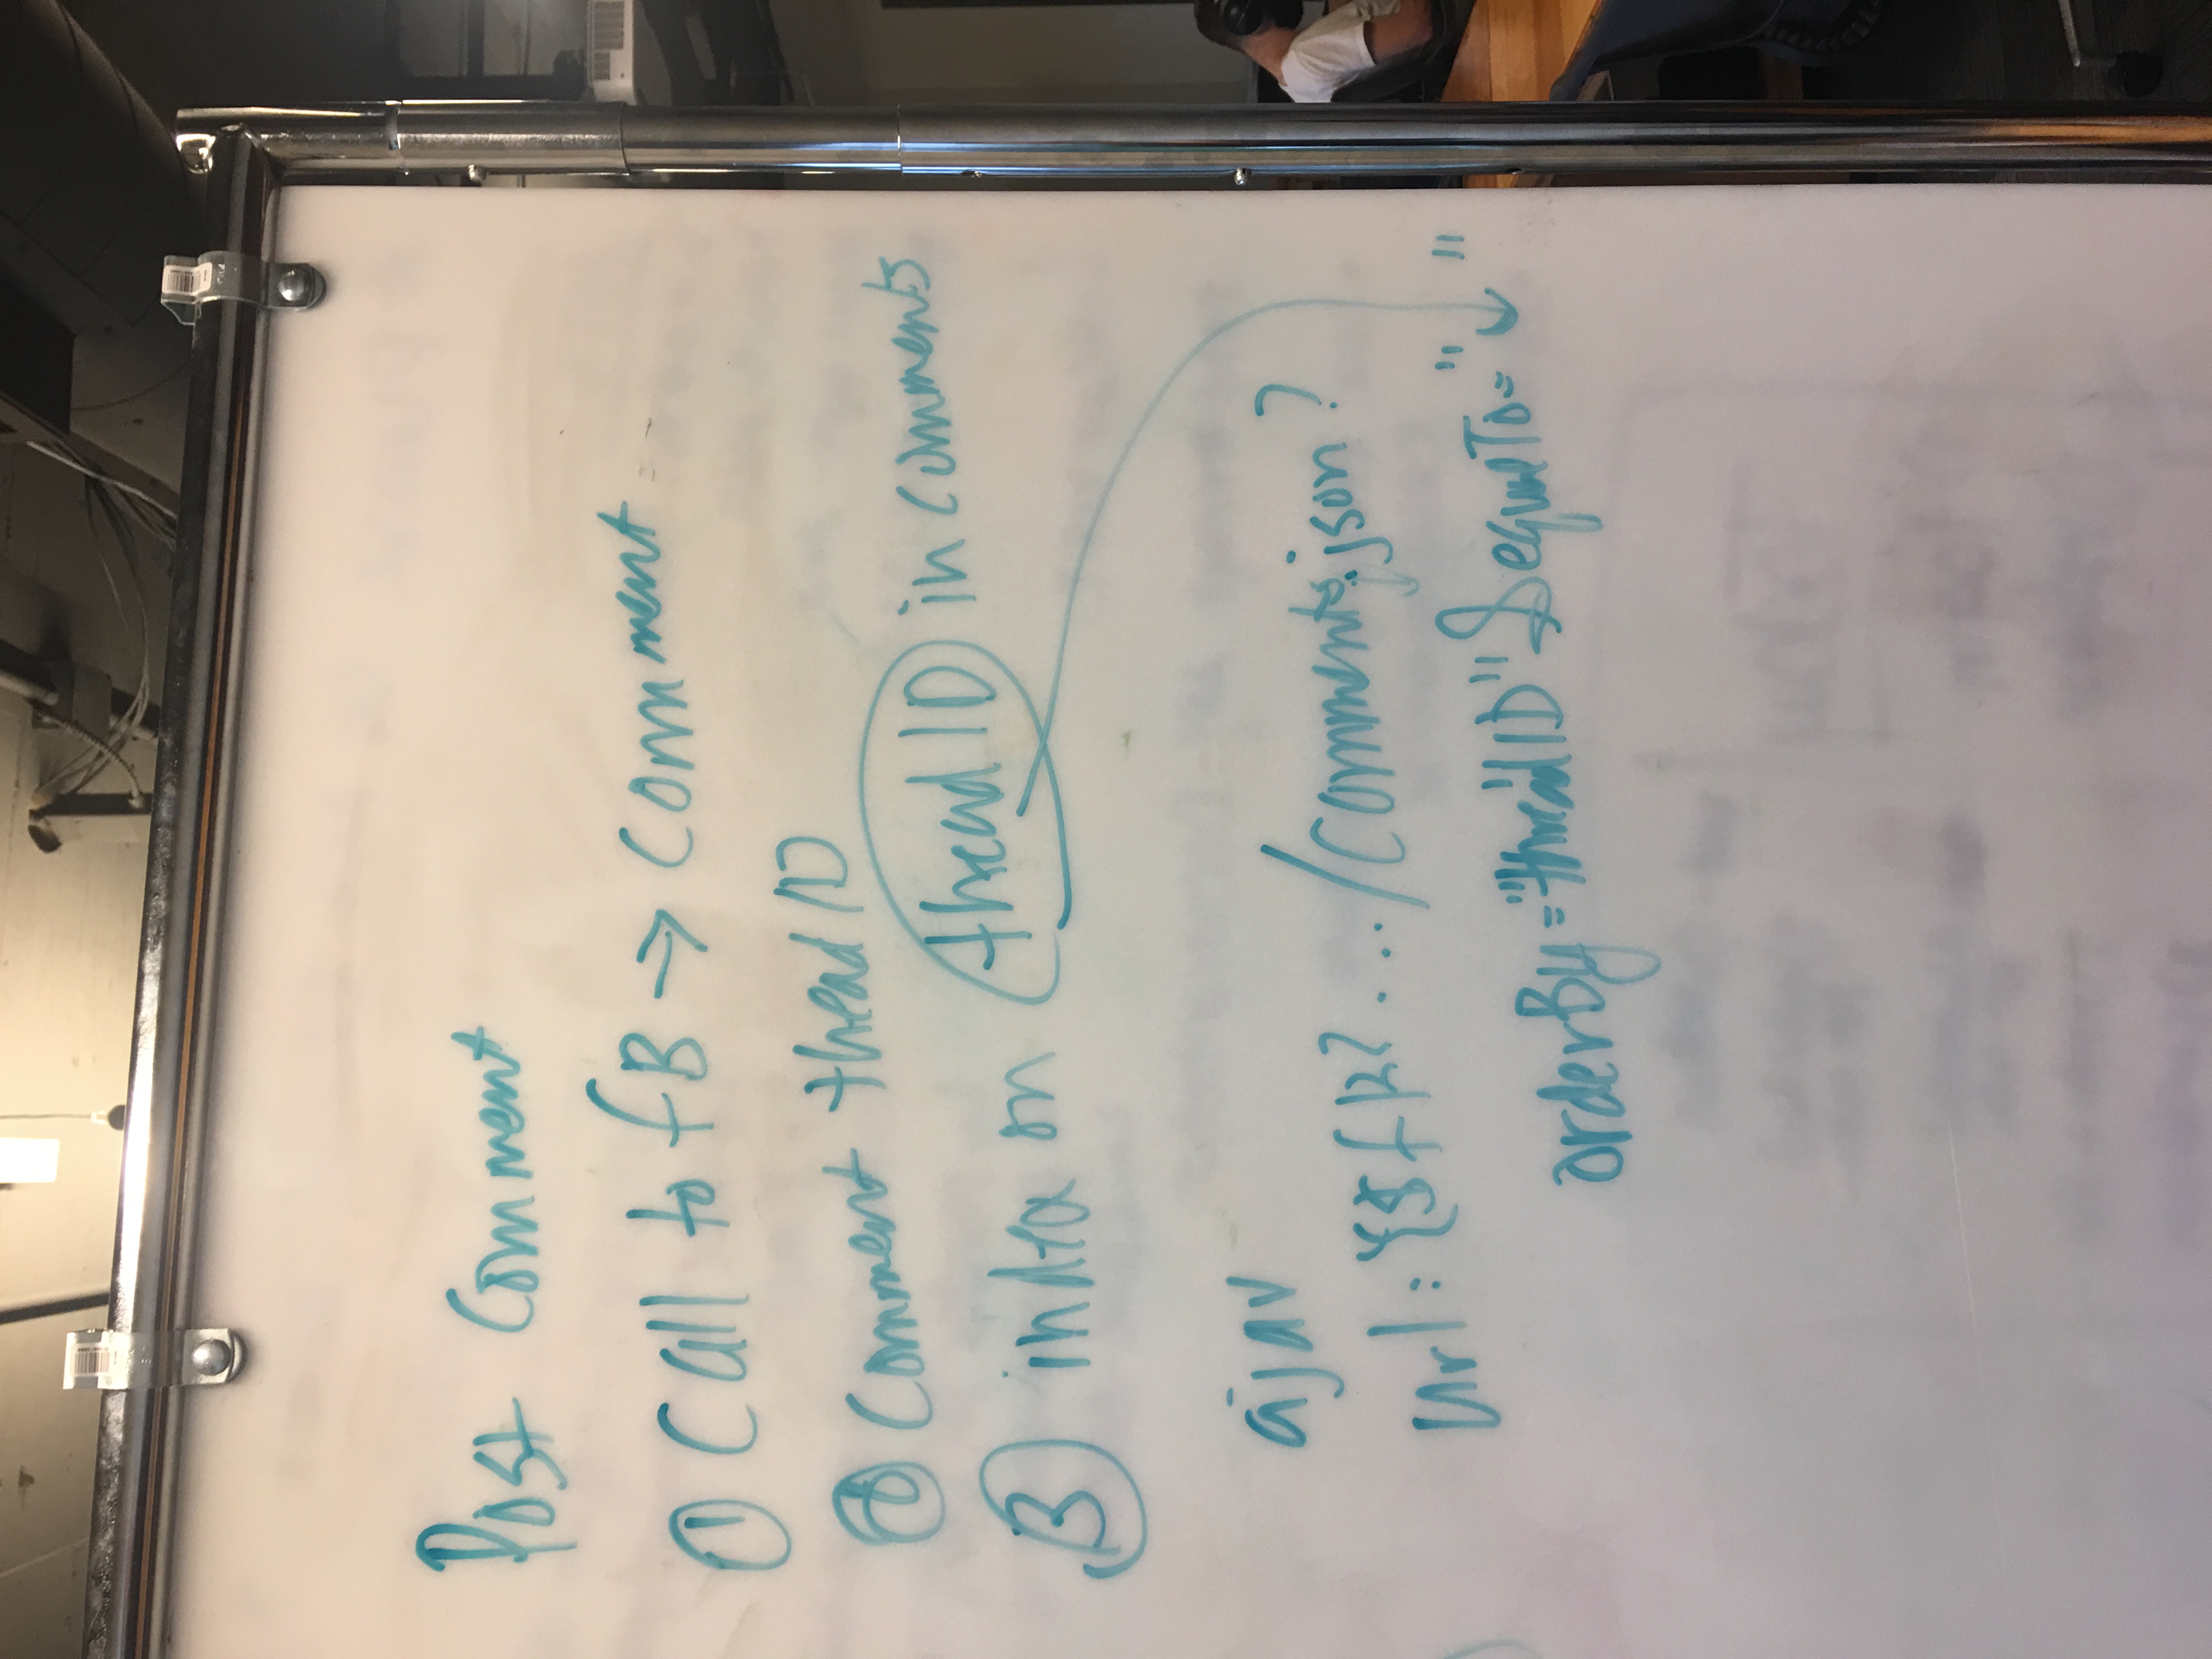 Post Comment
① Call to fB → Comment
② Comment theadID
③ index on theadID in comments
ajax
url: {$fb? .../comments.json?
orderBy="threadID"&equalTo=" "